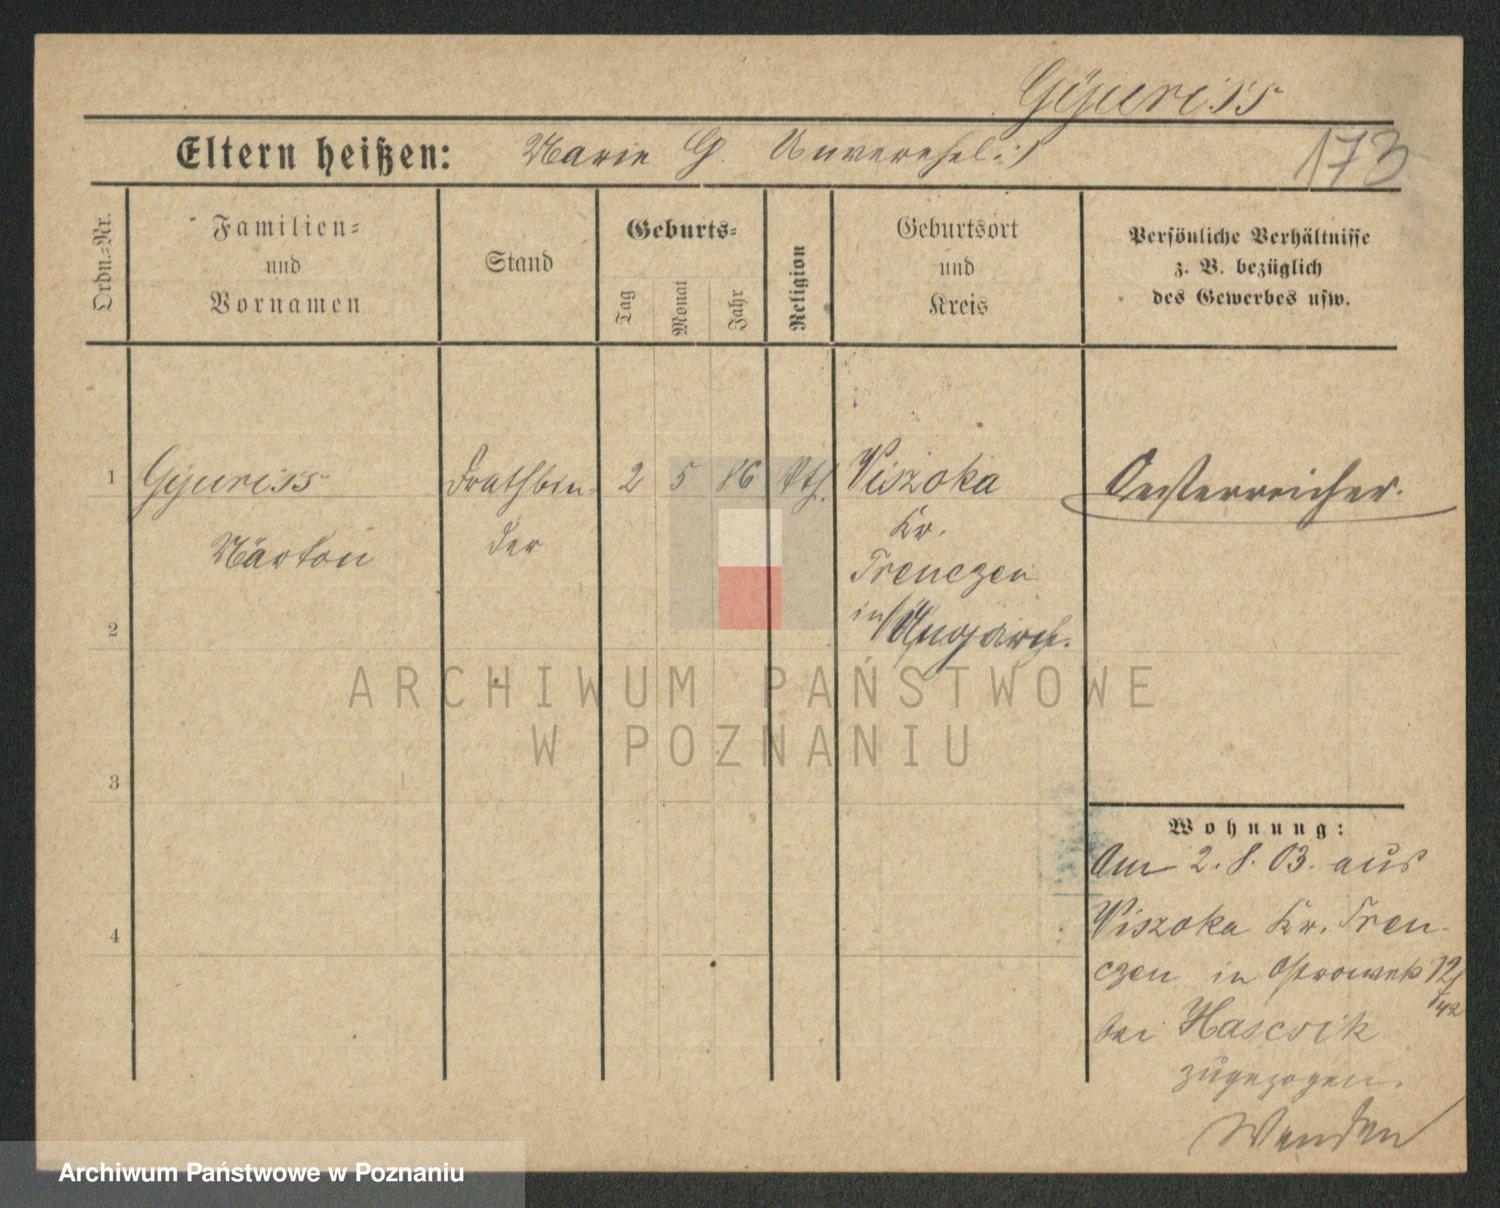 Gÿuriss
Eltern heißen: Marie G. Unverehel:)
173
Ordn.-Nr.
Familien-
und
Vornamen
Stand
Geburts-
Tag
Monat
Jahr
Religion
Geburtsort
und
Kreis
Persönliche Verhältnisse
z. B. bezüglich
des Gewerbes usw.
1 Gÿuriss Drathbin- 2 5 86 kth. Viszoka Oesterreicher.
Márton der Kr.
Trenczen
in Ungarn.
2
3
4
ARCHIWUM PAŃSTWOWE
W POZNANIU
Wohnung:
Am 2. 8. 03. aus
Viszoka Kr. Tren-
czen in Ostrowek 12/
42
bei Hascsik
zugezogen.
Archiwum Państwowe w Poznaniu